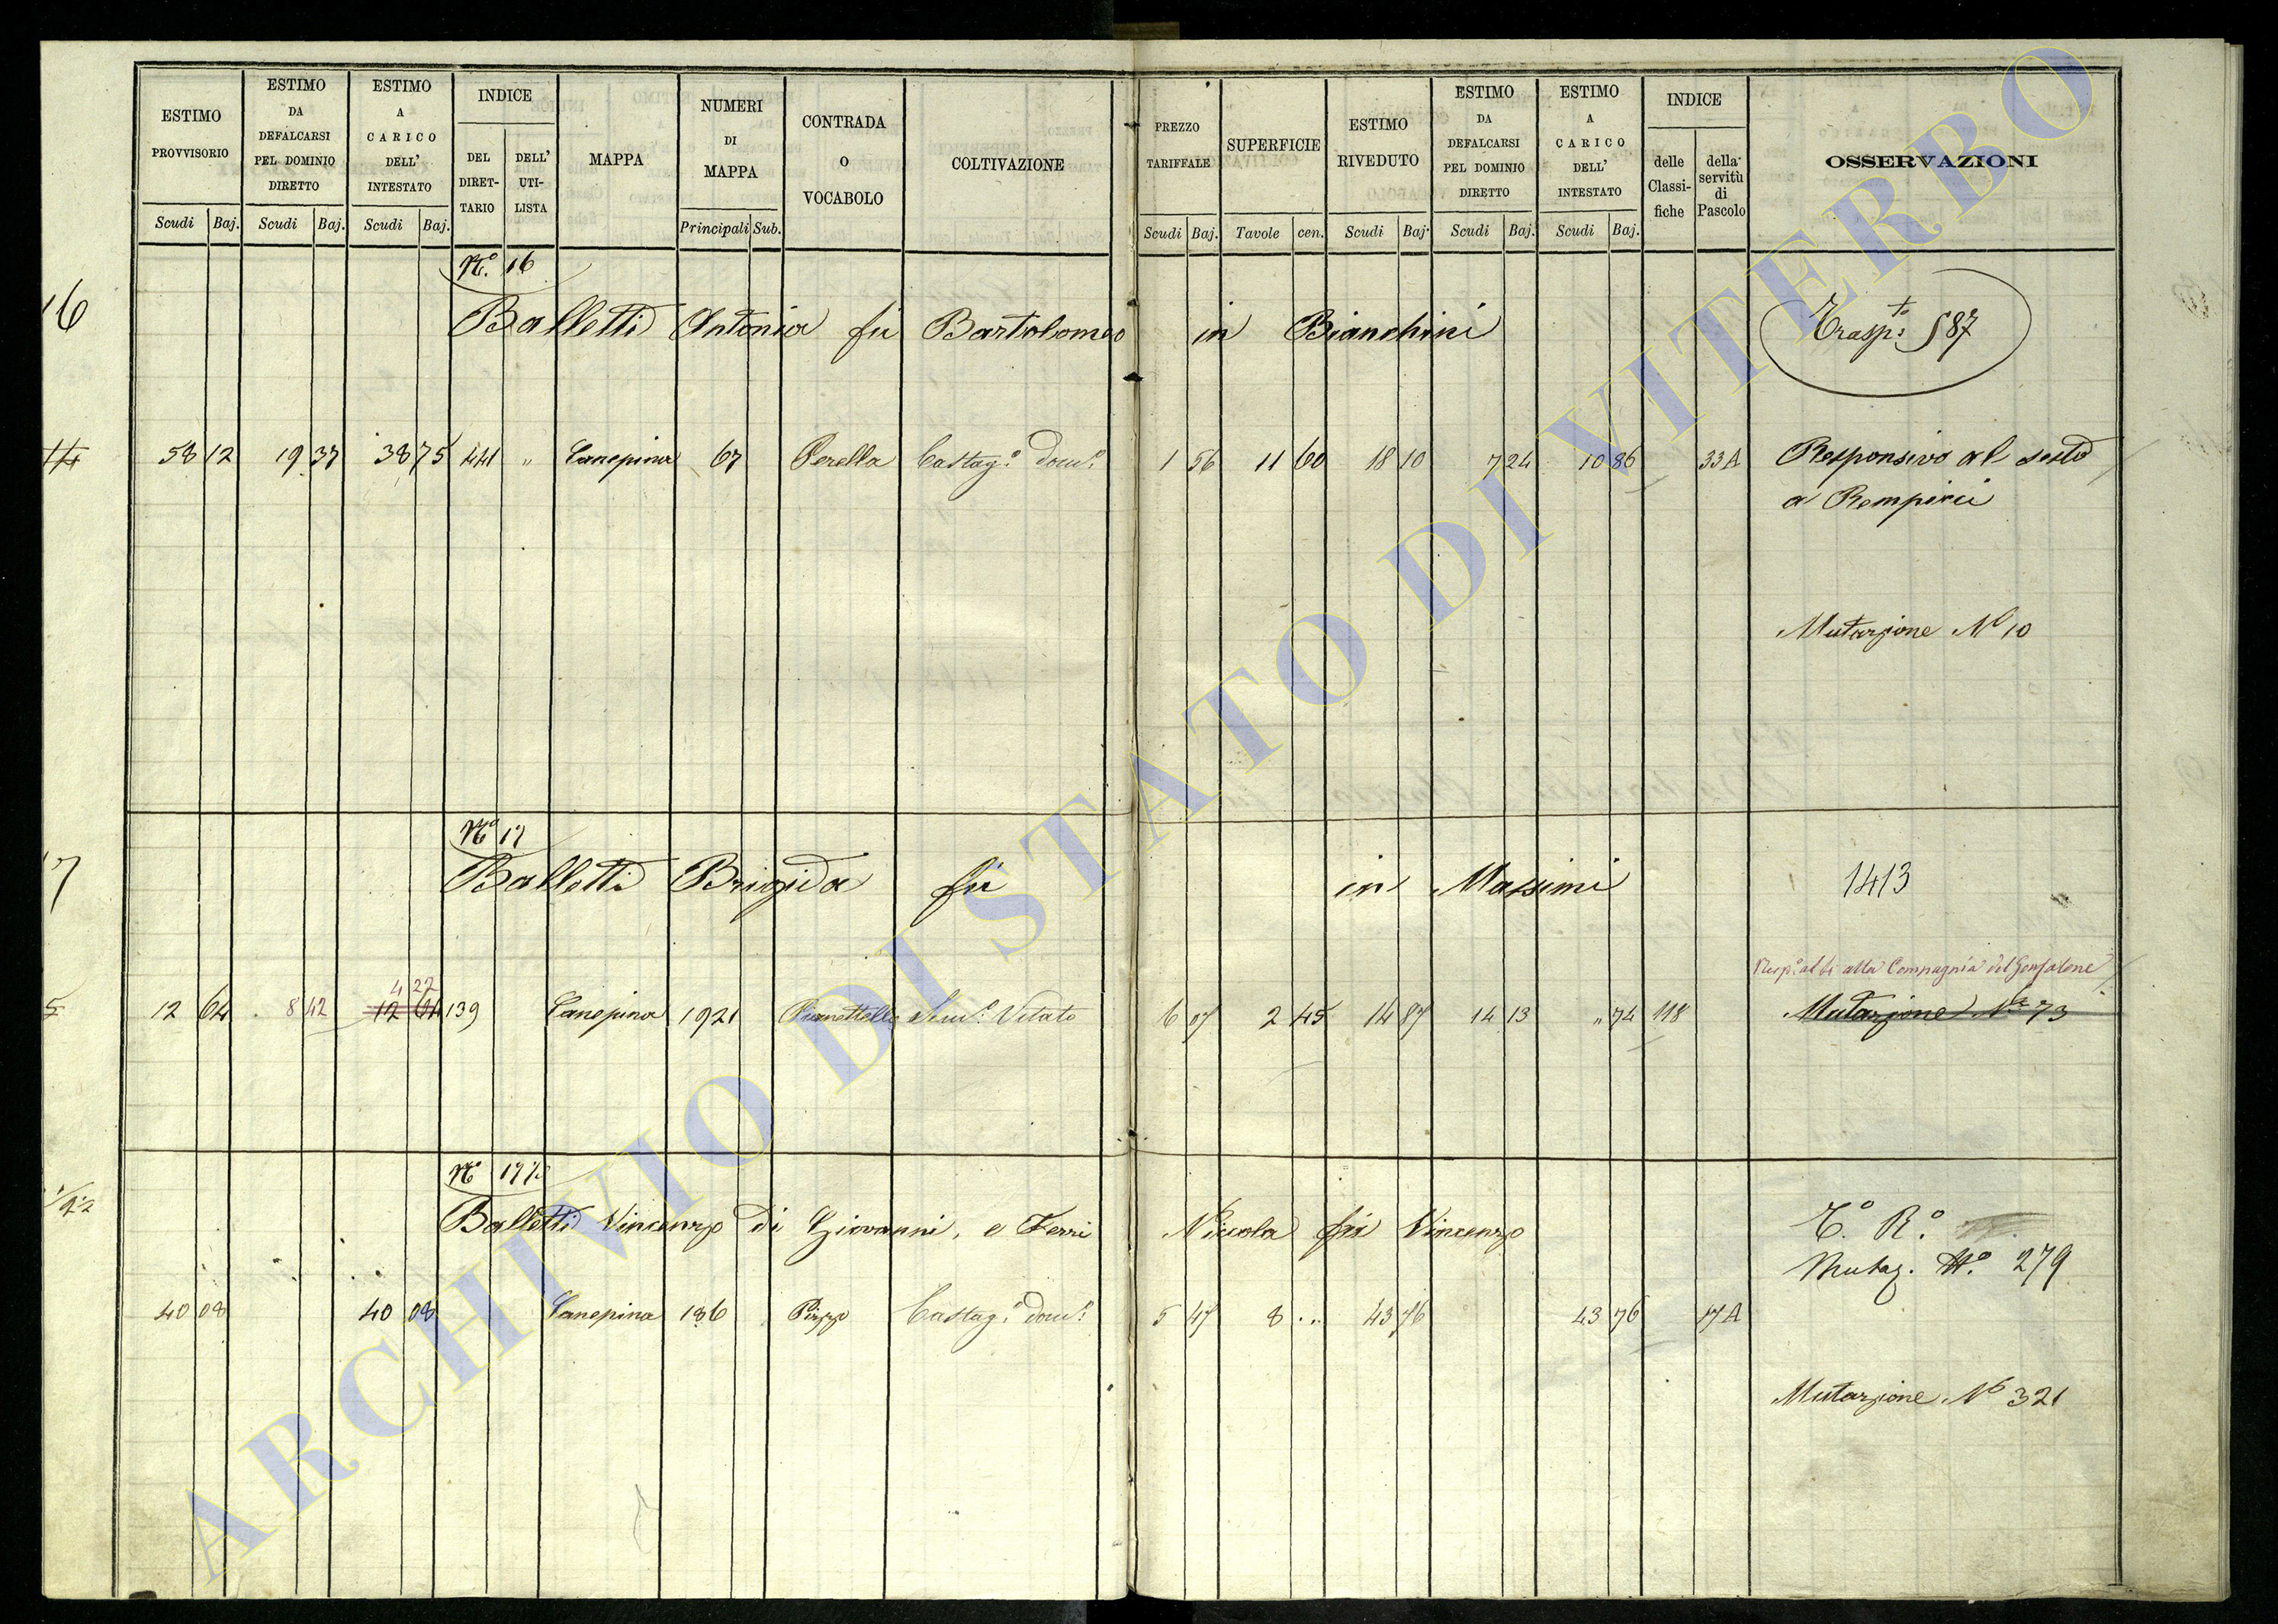 ESTIMO PROVVISORIO
ESTIMO DA DEFALCARSI PEL DOMINIO DIRETTO
ESTIMO A CARICO DELL' INTESTATO
INDICE
DEL DIRETTARIO
DELL' UTILISTA
MAPPA
NUMERI DI MAPPA
CONTRADA O VOCABOLO
COLTIVAZIONE
PREZZO TARIFFALE
SUPERFICIE
ESTIMO RIVEDUTO
ESTIMO DA DEFALCARSI PEL DOMINIO DIRETTO
ESTIMO A CARICO DELL' INTESTATO
INDICE
delle Classifiche
della servitù di Pascolo
OSSERVAZIONI
Scudi Baj. Scudi Baj. Scudi Baj. Principali Sub. Scudi Baj. Tavole cen. Scudi Baj. Scudi Baj. Scudi Baj.
16
Nº. 16
Balletti Antonia fu Bartolomeo in Bianchini
Trasp:to 587
58 12 19 37 38 75 441 " Canepina 67 Perella Castag:º dom:º 1 56 11 60 18 10 7 24 10 86 33A Responsivo al sesto
a Rempicci
Mutazione Nº 10
17
Nº 17
Balletti Brigida fu in Massimi
1413
Resp:º al 5i alla Compagnia del Gonfalone
4 22
12 64 8 42 12 64 139 Canepina 1921 Pianettelle Sem:º Vitato 6 07 2 45 14 87 14 13 " 74 118 Mutazione Nº 73
Nº 17½
Balletti Vincenzo di Giovanni, e Ferri Niccola fu Vincenzo
Tº. Rº.
Mutaz. Nº. 279
40 08 40 08 Canepina 186 Pizzo Castag:º dom:º 5 47 8 .. 43 76 43 76 17A
Mutazione Nº 321
ARCHIVIO DI STATO DI VITERBO